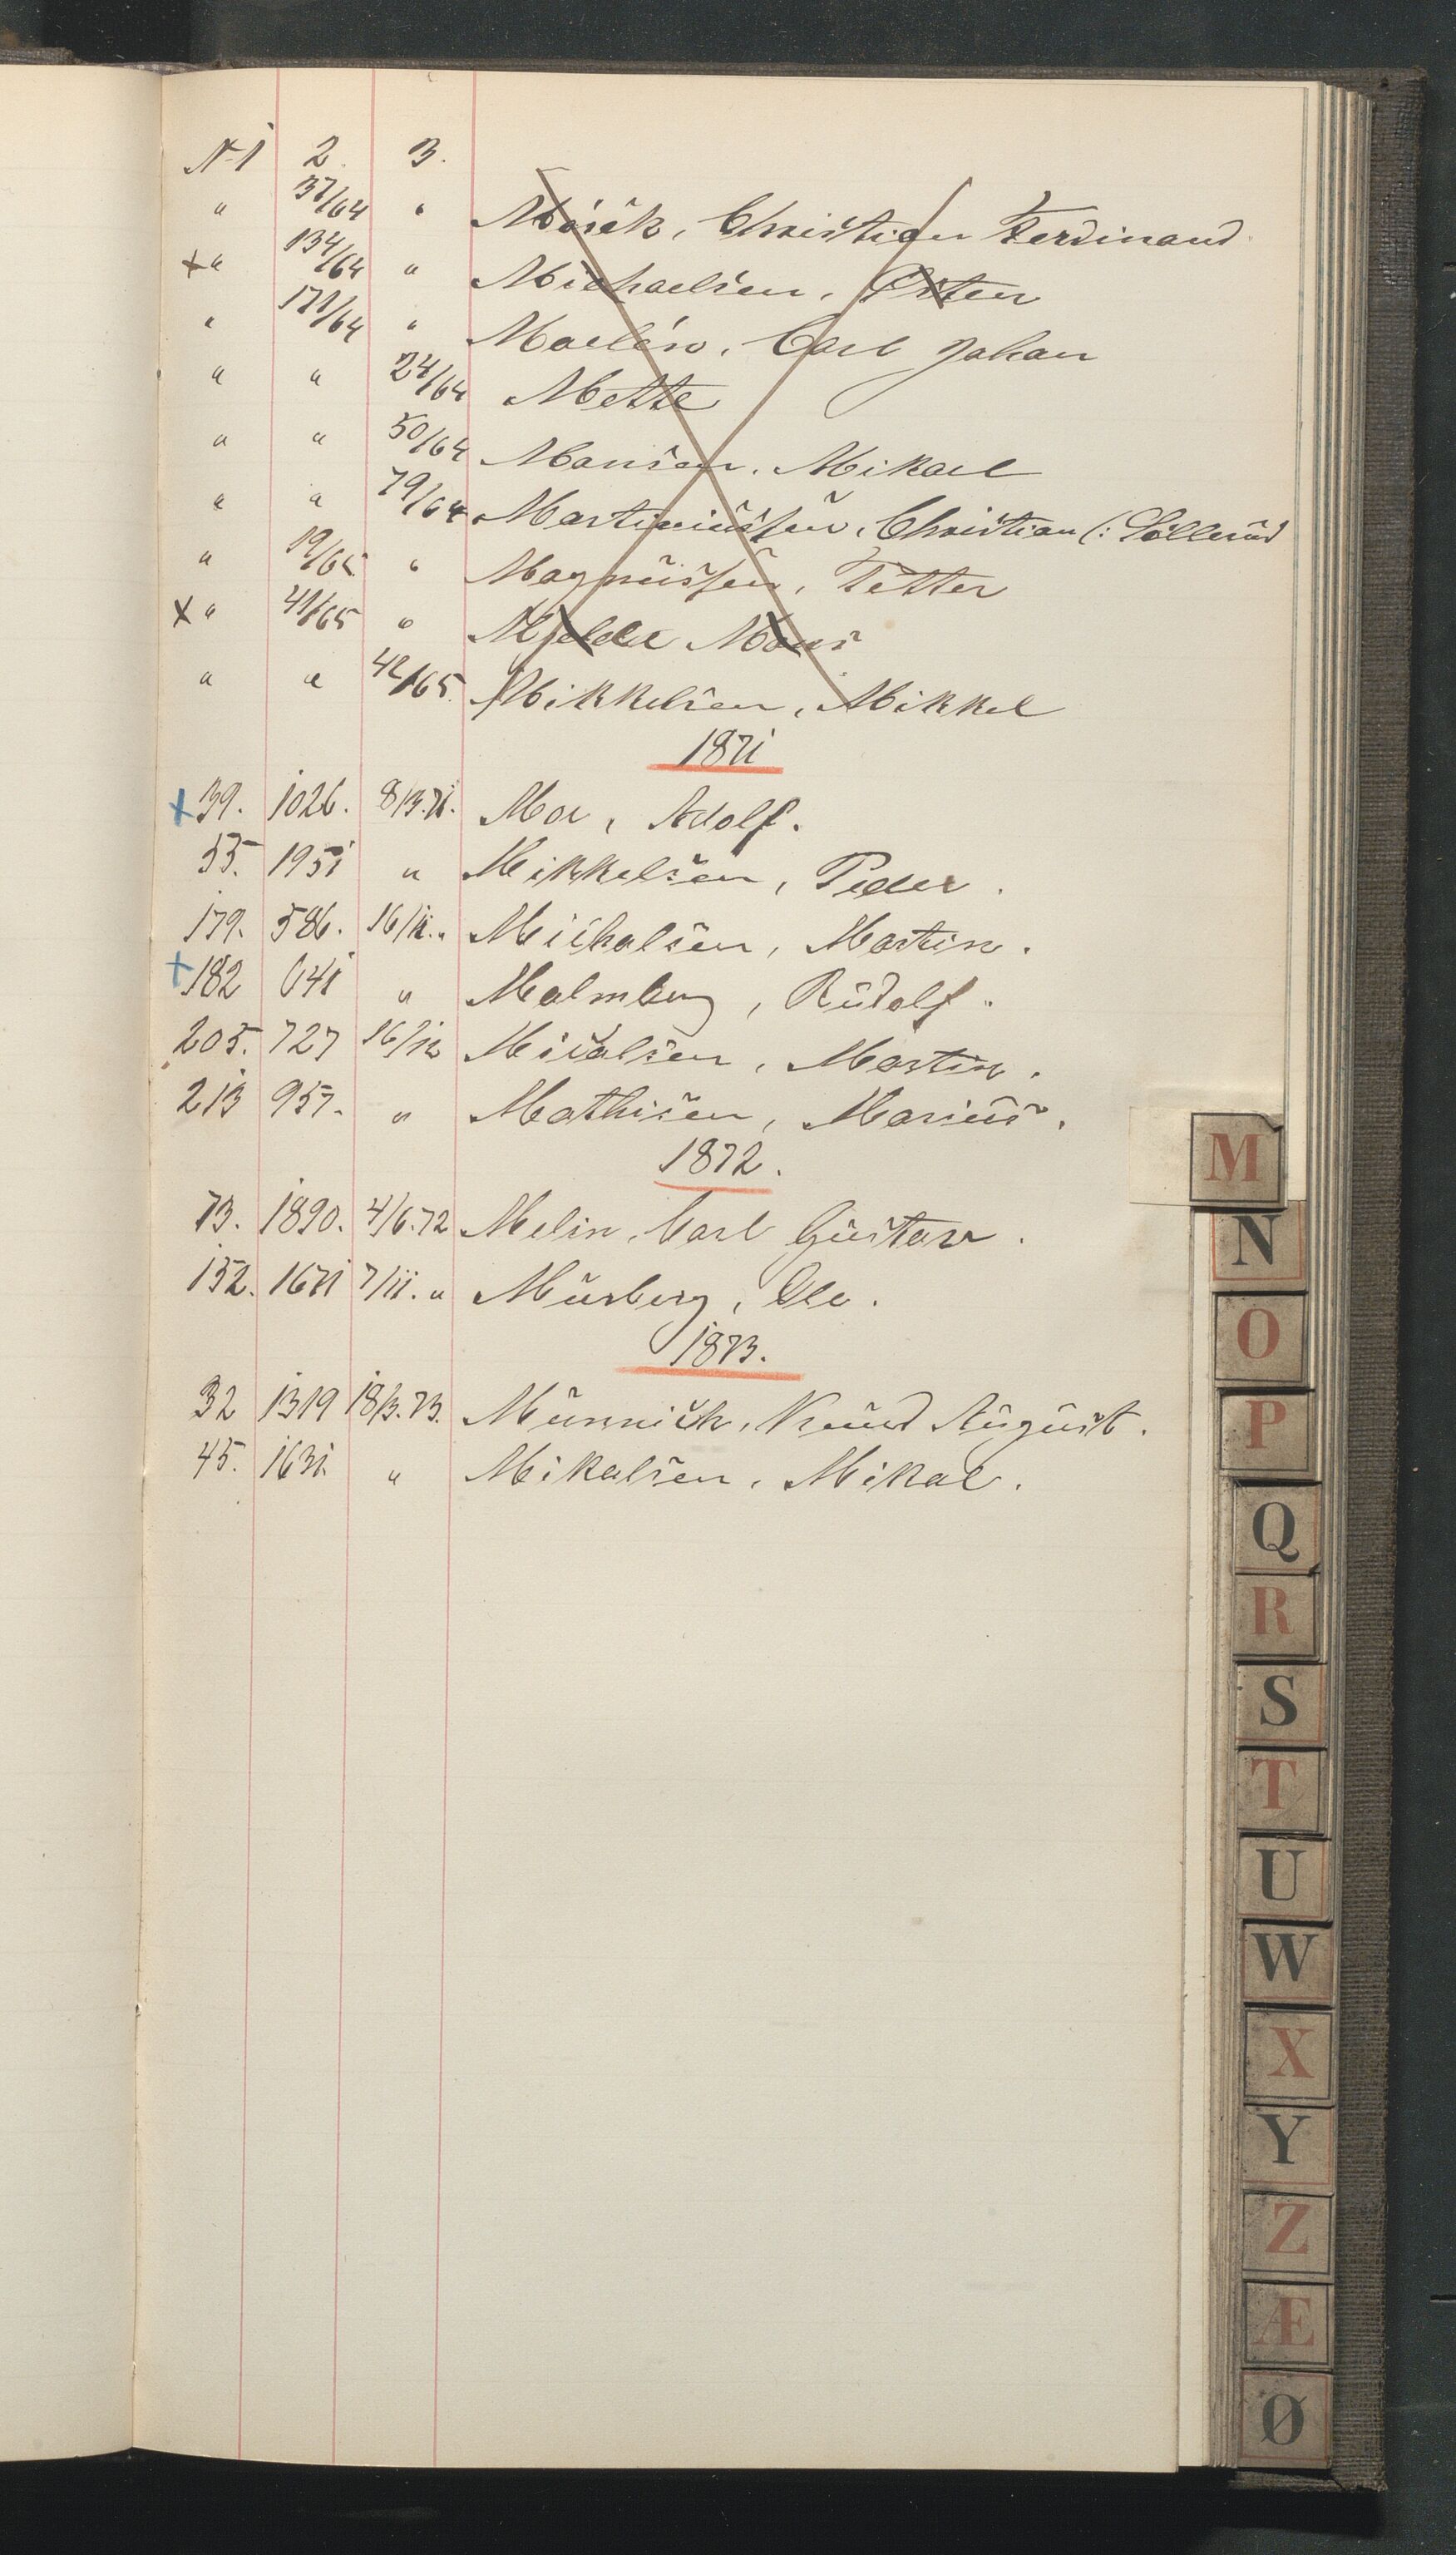 N1 2. 3.
" 37/64 " Mörck, Christian Ferdinand
+ " 134/64 " Michaelsen, Östen
" 171/64 " Maelén, Carl Johan
" " 24/64 Mette
" " 50/64 Monsen, Mikael
" " 79/64 Martiniussen, Christian (: Söllerud
" 19/65 " Magnussen, Petter
X " 41/65 " Mjelde Mons
" " 42/65 Mikkelsen, Mikkel
1871
+ 39. 1026. 8/3.71. Moe, Adolf.
55. 1951 " Mikkelsen, Peder.
179. 586. 16/11." Michalsen, Martin.
+ 182 641 " Malmberg, Rudolf.
205. 727 16/12 Micalsen, Martin.
213 957. " Mathisen, Marius.
1872.
73. 1890. 4/6.72 Melin, Carl Gustav.
152. 1671 7/11. " Murberg, Ole.
1873.
32 1319 18/3.73. Münnich, Knud August.
45. 1631. " Mikalsen, Mikal.
M
N
O
P
Q
R
S
T
U
W
X
Y
Z
Æ
Ø